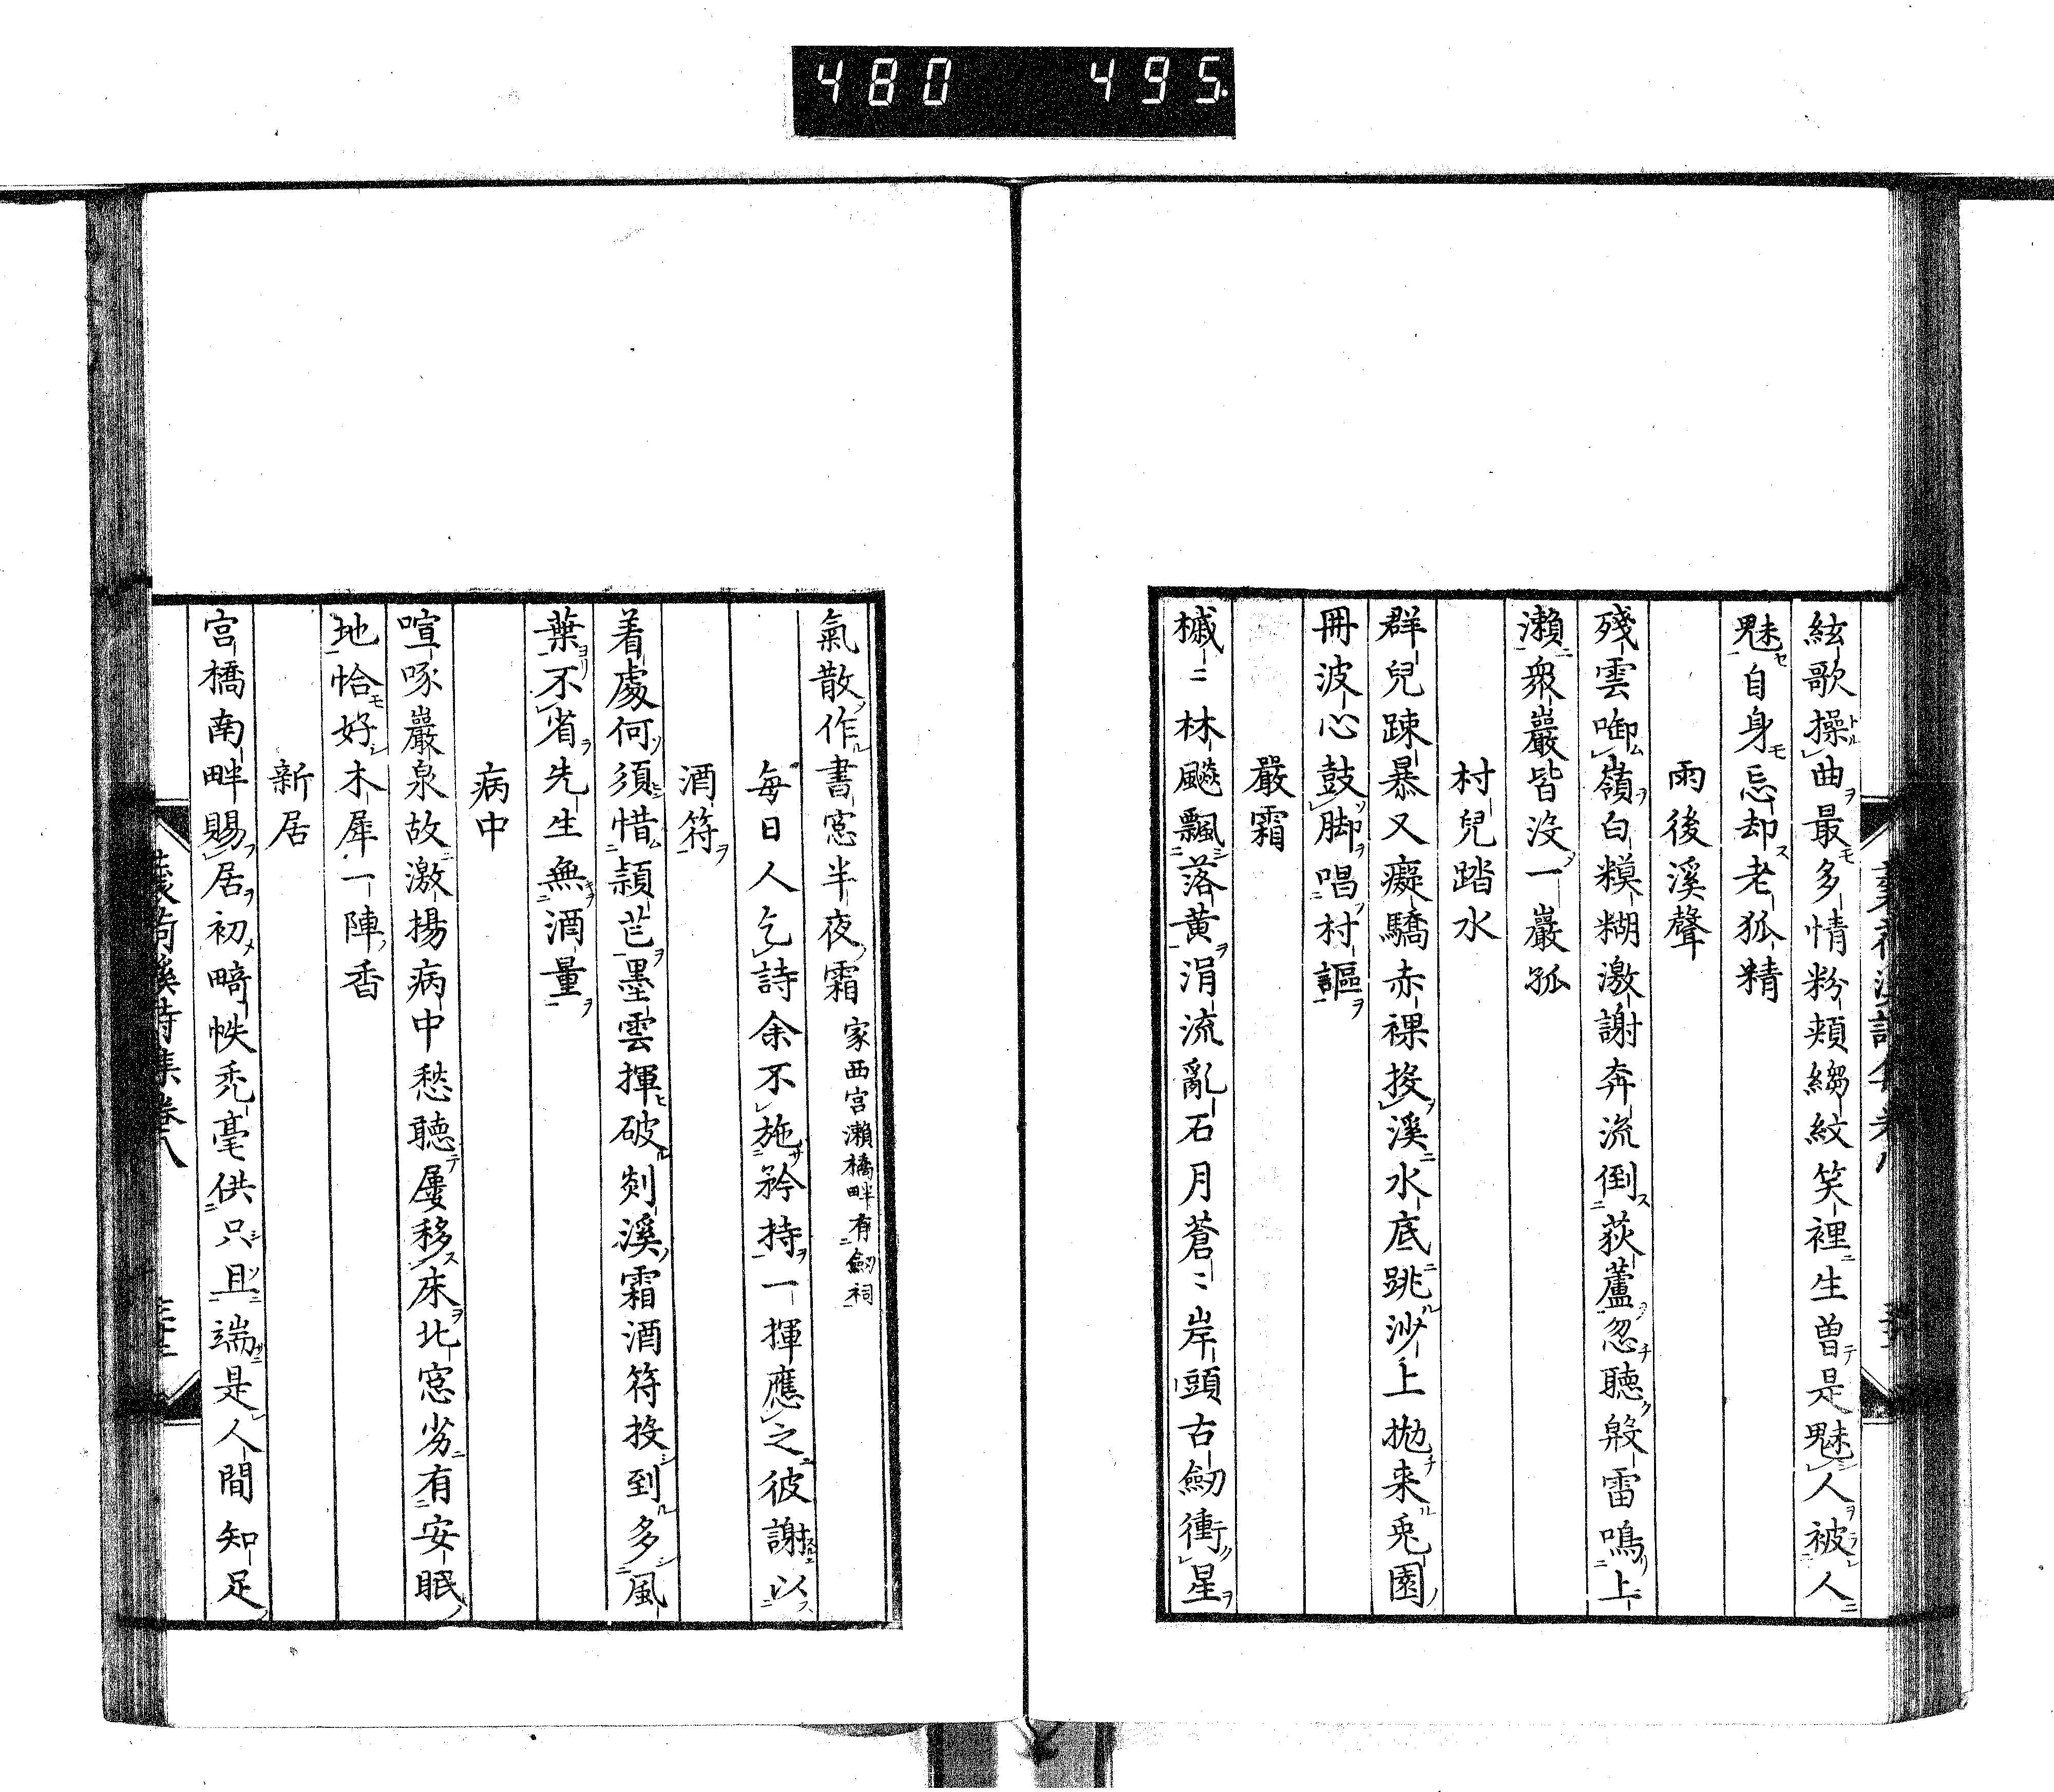 480 495.
絃歌操曲最多情粉頬縐紋笑裡生曽是魅人被人
魅自身忘却老狐精
雨後溪聲
殘雲啣嶺白糢糊激謝奔流倒荻蘆忽聴殷雷鳴上
瀬衆巖皆没一巖孤
村兒踏水
群兒踈暴又癡驕赤裸投溪水底跳沙上拋来兎園
冊波心鼓脚唱村謳
嚴霜
槭〻林飈飄落黄涓流亂石月蒼〻岸頭古劒衝星
氣散作書窓半夜霜 家西宮瀬橋畔有劒祠
每日人乞詩余不施矜持一揮應之彼謝以
酒符
着處何須惜穎芒墨雲揮破剡溪霜酒符投到多風
葉不省先生無酒量
病中
喧啄巖泉故激揚病中愁聴屡移床北窓劣有安眠
地恰好木犀一陣香
新居
宮橋南畔賜居初畸帙禿毫供只且端是人間知足
溪詩集巻八